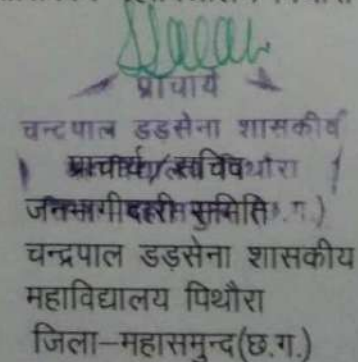 प्राचार्य
चन्द्रपाल डड़सेना शासकीय
प्राचार्य/सचिव पिथौरा
जनभागीदारी समिति
चन्द्रपाल डड़सेना शासकीय
महाविद्यालय पिथौरा
जिला–महासमुन्द(छ.ग.)